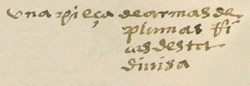 una pieça de armas de
plumas Ri
cas desta
diuisa